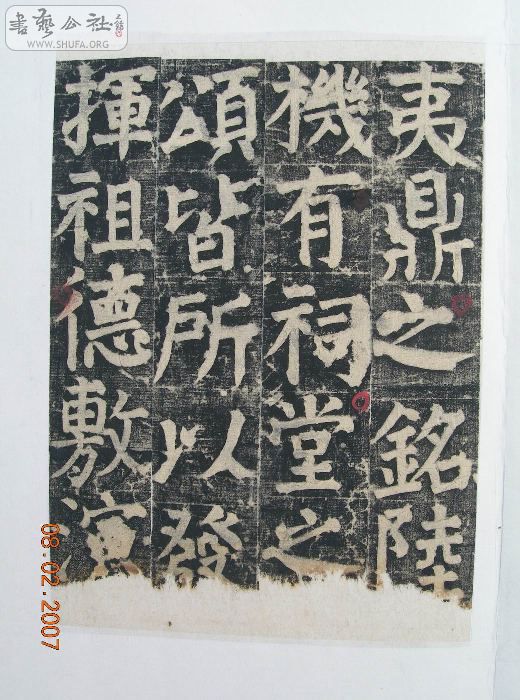 夷鼎之銘陸
機有祠堂之
頌皆所以發
揮祖德敷演
書藝公社
WWW.SHUFA.ORG
08.02.2007